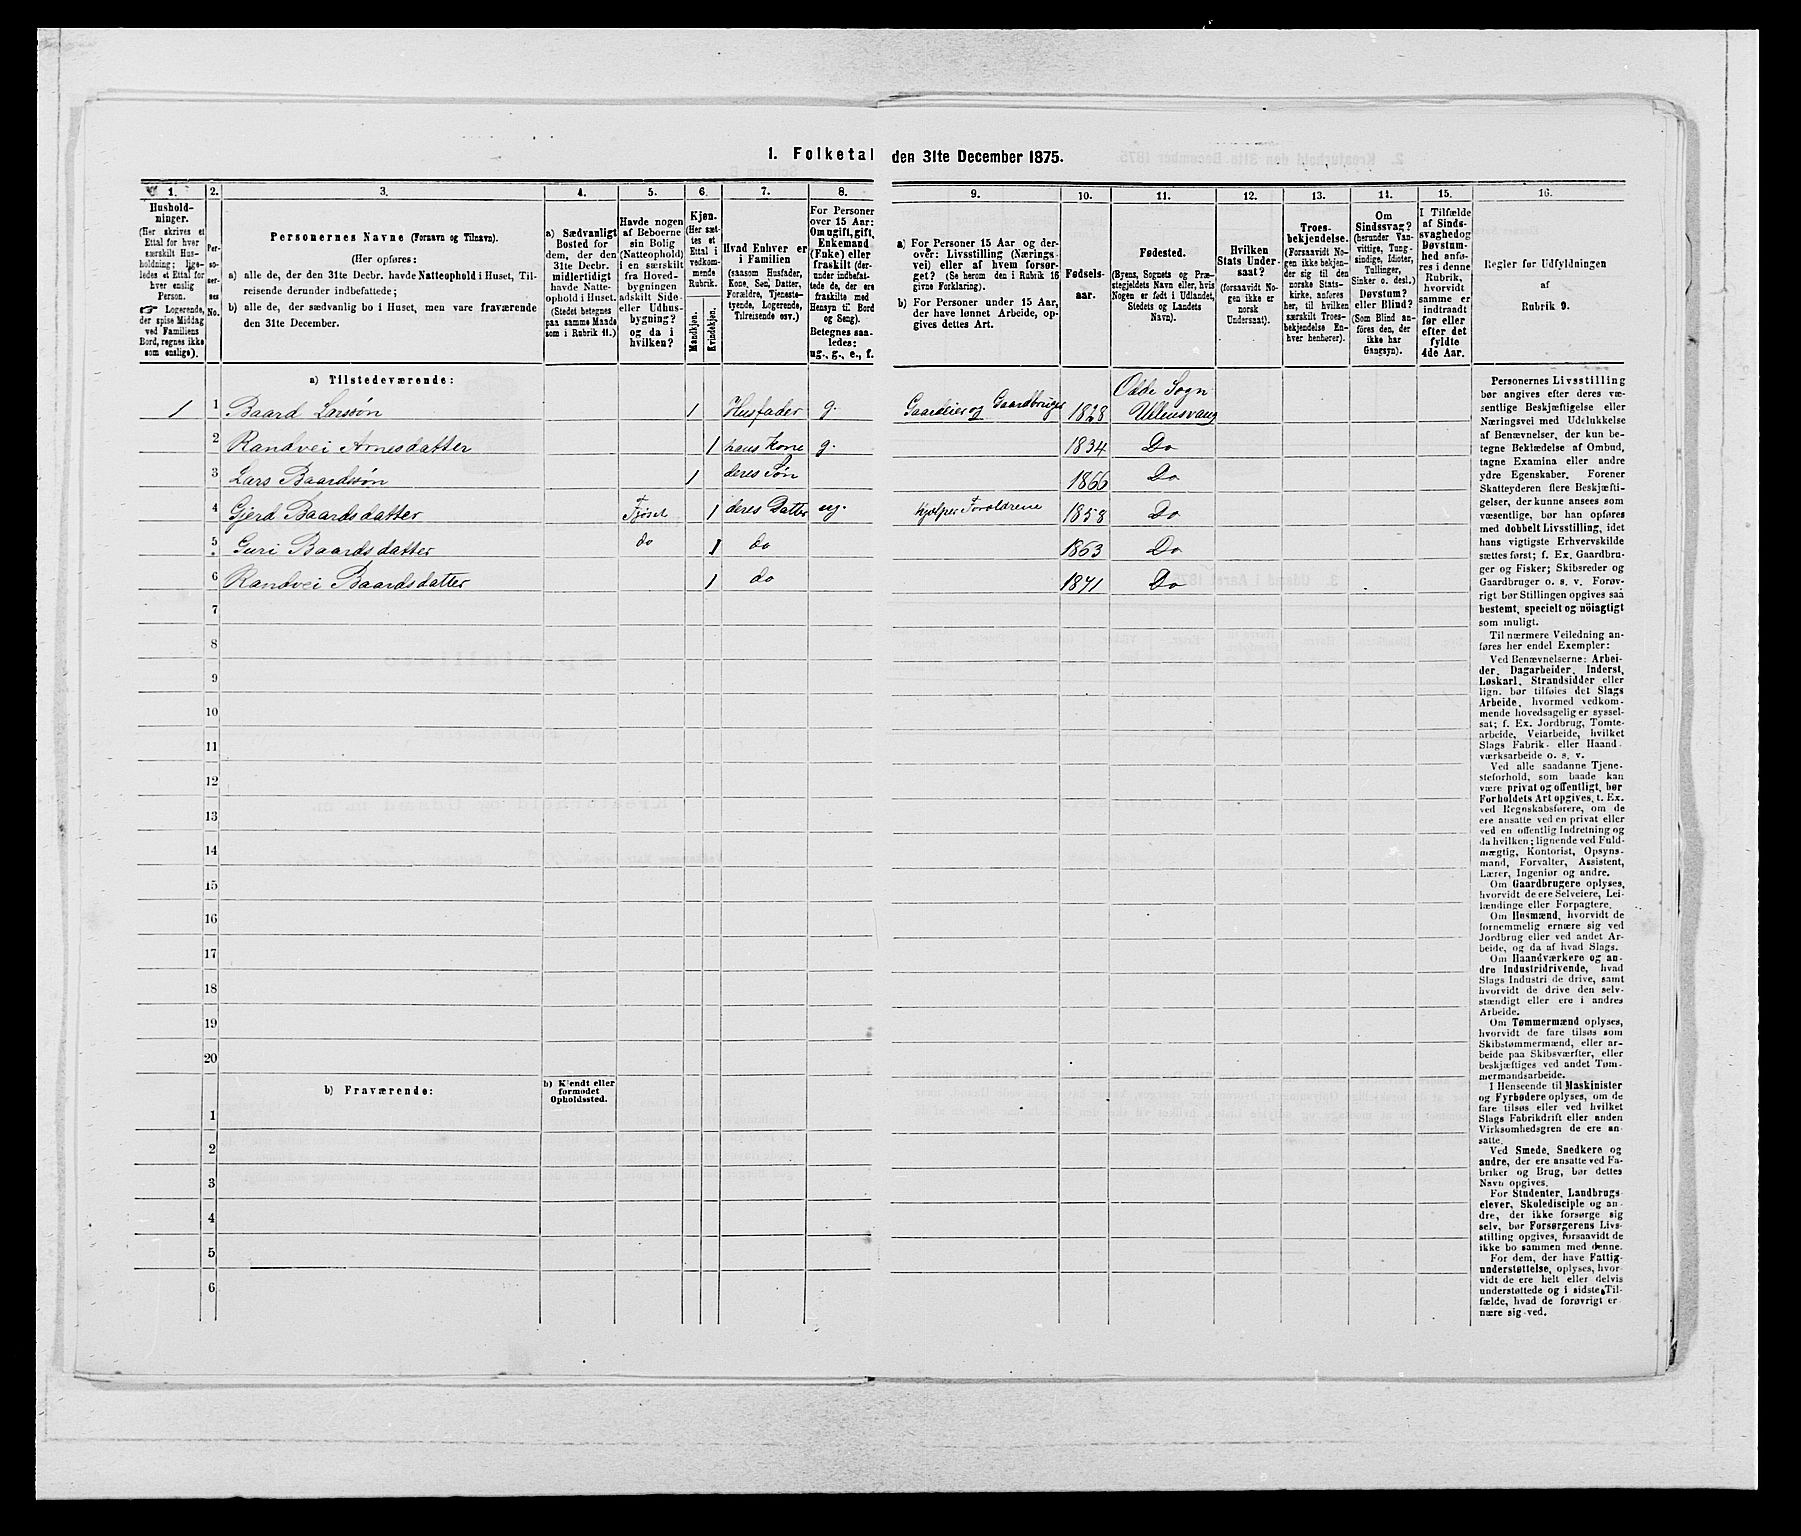 1. Folketal den 31te December 1875.
1.
2.
3.
4.
5.
6.
7.
8.
9.
10.
11.
12.
13.
14.
15.
16.
Hushold-
ninger.
(Her skrives et
Ettal for hver
særskilt Hus-
holdning; lige-
ledes et Ettal for
hver enslig
Person.
☞ Logerende,
der spise Middag
ved Familiens
Bord, regnes ikke
som enslige).
Per-
so-
ner-
nes
No.
Personernes Navne (Fornavn og Tilnavn).
(Her opføres:
a) alle de, der den 31te Decbr. havde Natteophold i Huset, Til-
reisende derunder indbefattede;
b) alle de, der sædvanlig bo i Huset, men vare fraværende
den 31te December.
a) Sædvanligt
Bosted for
dem, der den
31te Decbr.
midlertidigt
havde Natte-
ophold i Huset.
(Stedet betegnes
paa samme Maade
som i Rubrik 11.)
Havde nogen
af Beboerne
sin Bolig
(Natteophold)
i en særskilt
fra Hoved-
bygningen
adskilt Side-
eller Udhus-
bygning?
og da i
hvilken?
Kjøn.
(Her sæt-
tes et
Ettal i
vedkom-
mende
Rubrik.
Mandkjøn.
Kvindekjøn.
Hvad Enhver er
i Familien
(saasom Husfader,
Kone, Søn, Datter,
Forældre, Tjeneste-
tyende, Logerende,
Tilreisende osv.)
For Personer
over 15 Aar:
Om ugift, gift,
Enkemand
(Enke) eller
fraskilt (der-
under indbefat-
tede de, der ere
fraskilte med
Hensyn til Bord
og Seng).
Betegnes saa-
ledes:
ug., g., e., f.
a) For Personer 15 Aar og der-
over: Livsstilling (Nærings-
vei) eller af hvem forsør-
get? (Se herom den i Rubrik 16
givne Forklaring).
b) For Personer under 15 Aar,
der have lønnet Arbeide, op-
gives dettes Art.
Fødsels-
aar.
Fødested.
(Byens, Sognets og Præ-
stegjeldets Navn eller, hvis
Nogen er født i Udlandet,
Stedets og Landets
Navn).
Hvilken
Stats Under-
saat?
(forsaavidt No-
gen ikke er
norsk
Undersaat).
Troes-
bekjendelse.
(Forsaavidt No-
gen ikke bekjen-
der sig til den
norske Stats-
kirke, anføres
her, til hvilken
særskilt Troes-
bekjendelse En-
hver henhører).
Om
Sindssvag?
(herunder Van-
vittige, Tung-
sindige, Idioter,
Tullinger,
Sinker o. desl.)
Døvstum?
eller Blind?
(Som Blind an-
føres den, der
ikke har
Gangsyn).
I Tilfælde
af Sinds-
svaghed og
Døvstum-
hed anfø-
res i denne
Rubrik,
hvorvidt
samme er
indtraadt
før eller
efter det
fyldte
4de Aar.
Regler for Udfyldningen
af
Rubrik 9.
a) Tilstedeværende:
Odde Sogn
1 1 Baard Larssøn 1 Husfader g. Gaardeier og Gaardbruger 1828 Ullensvang
2 Randvei Arnesdatter 1 hans Kone g. 1834 Do
3 Lars Baardssøn 1 deres Søn 1866 Do
4 Gjerd Baardsdatter Fjøset 1 deres Datter ug. hjelper Foreldrene 1858 Do
5 Guri Baardsdatter do 1 do 1863 Do
6 Randvei Baardsdatter 1 do 1871 Do
7
8
9
10
11
12
13
14
15
16
17
18
19
20
b) Fraværende:
b) Kjendt eller
formodet
Opholdssted.
1
2
3
4
5
6
Personernes Livsstilling
bør angives efter deres væ-
sentlige Beskjæftigelse eller
Næringsvei med Udelukkelse
af Benævnelser, der kun be-
tegne Beklædelse af Ombud,
tagne Examina eller andre
ydre Egenskaber. Forener
Skatteyderen flere Beskjæfti-
gelser, der kunne ansees som
væsentlige, bør han opføres
med dobbelt Livsstilling, idet
hans vigtigste Erhvervskilde
sættes først; f. Ex. Gaardbru-
ger og Fisker; Skibsreder og
Gaardbruger o. s. v. Forøv-
rigt bør Stillingen opgives saa
bestemt, specielt og nöiagtigt
som muligt.
Til nærmere Veiledning an-
føres her endel Exempler:
Ved Benævnelserne: Arbei-
der, Dagarbeider, Inderst,
Løskarl, Strandsidder eller
lign. bør tilføies det Slags
Arbeide, hvormed vedkom-
mende hovedsagelig er syssel-
sat; f. Ex. Jordbrug, Tomte-
arbeide, Veiarbeide, hvilket
Slags Fabrik- eller Haand-
værksarbeide o. s. v.
Ved alle saadanne Tjene-
steforhold, som baade kan
være privat og offentligt, bør
Forholdets Art opgives, t. Ex.
ved Regnskabsførere, om de
ere ansatte ved en privat eller
ved en offentlig Indretning og
da hvilken; lignende ved Fuld-
mægtig, Kontorist, Opsyns-
mand, Forvalter, Assistent,
Lærer, Ingeniør og andre.
Om Gaardbrugere oplyses,
hvorvidt de ere Selveiere, Lei-
lændinge eller Forpagtere.
Om Husmænd, hvorvidt de
fornemmelig ernære sig ved
Jordbrug eller ved andet Ar-
beide, og da af hvad Slags.
Om Haandværkere og an-
dre Industridrivende, hvad
Slags Industri de drive, samt
hvorvidt de drive den selv-
stændigt eller ere i andres
Arbeide.
Om Tømmermænd oplyses,
hvorvidt de fare tilsøs som
Skibstømmermænd, eller ar-
beide paa Skibsværfter, eller
beskjæftiges ved andet Tøm-
mermandsarbeide.
I Henseende til Maskinister
og Fyrbødere oplyses, om de
fare tilsøs eller ved hvilket
Slags Fabrikdrift eller anden
Virksomhedsgren de ere an-
satte.
Ved Smede, Snedkere og
andre, der ere ansatte ved Fa-
briker og Brug, bør dettes
Navn opgives.
For Studenter, Landbrugs-
elever, Skoledisciple og an-
dre, der ikke forsørge sig
selv, bør Forsørgerens Livs-
stilling opgives, forsaavidt de
ikke bo sammen med denne.
For dem, der have Fattig-
understøttelse, oplyses, hvor-
vidt de ere helt eller delvis
understøttede og i sidste Til-
fælde, hvad de forøvrigt er-
nære sig ved.